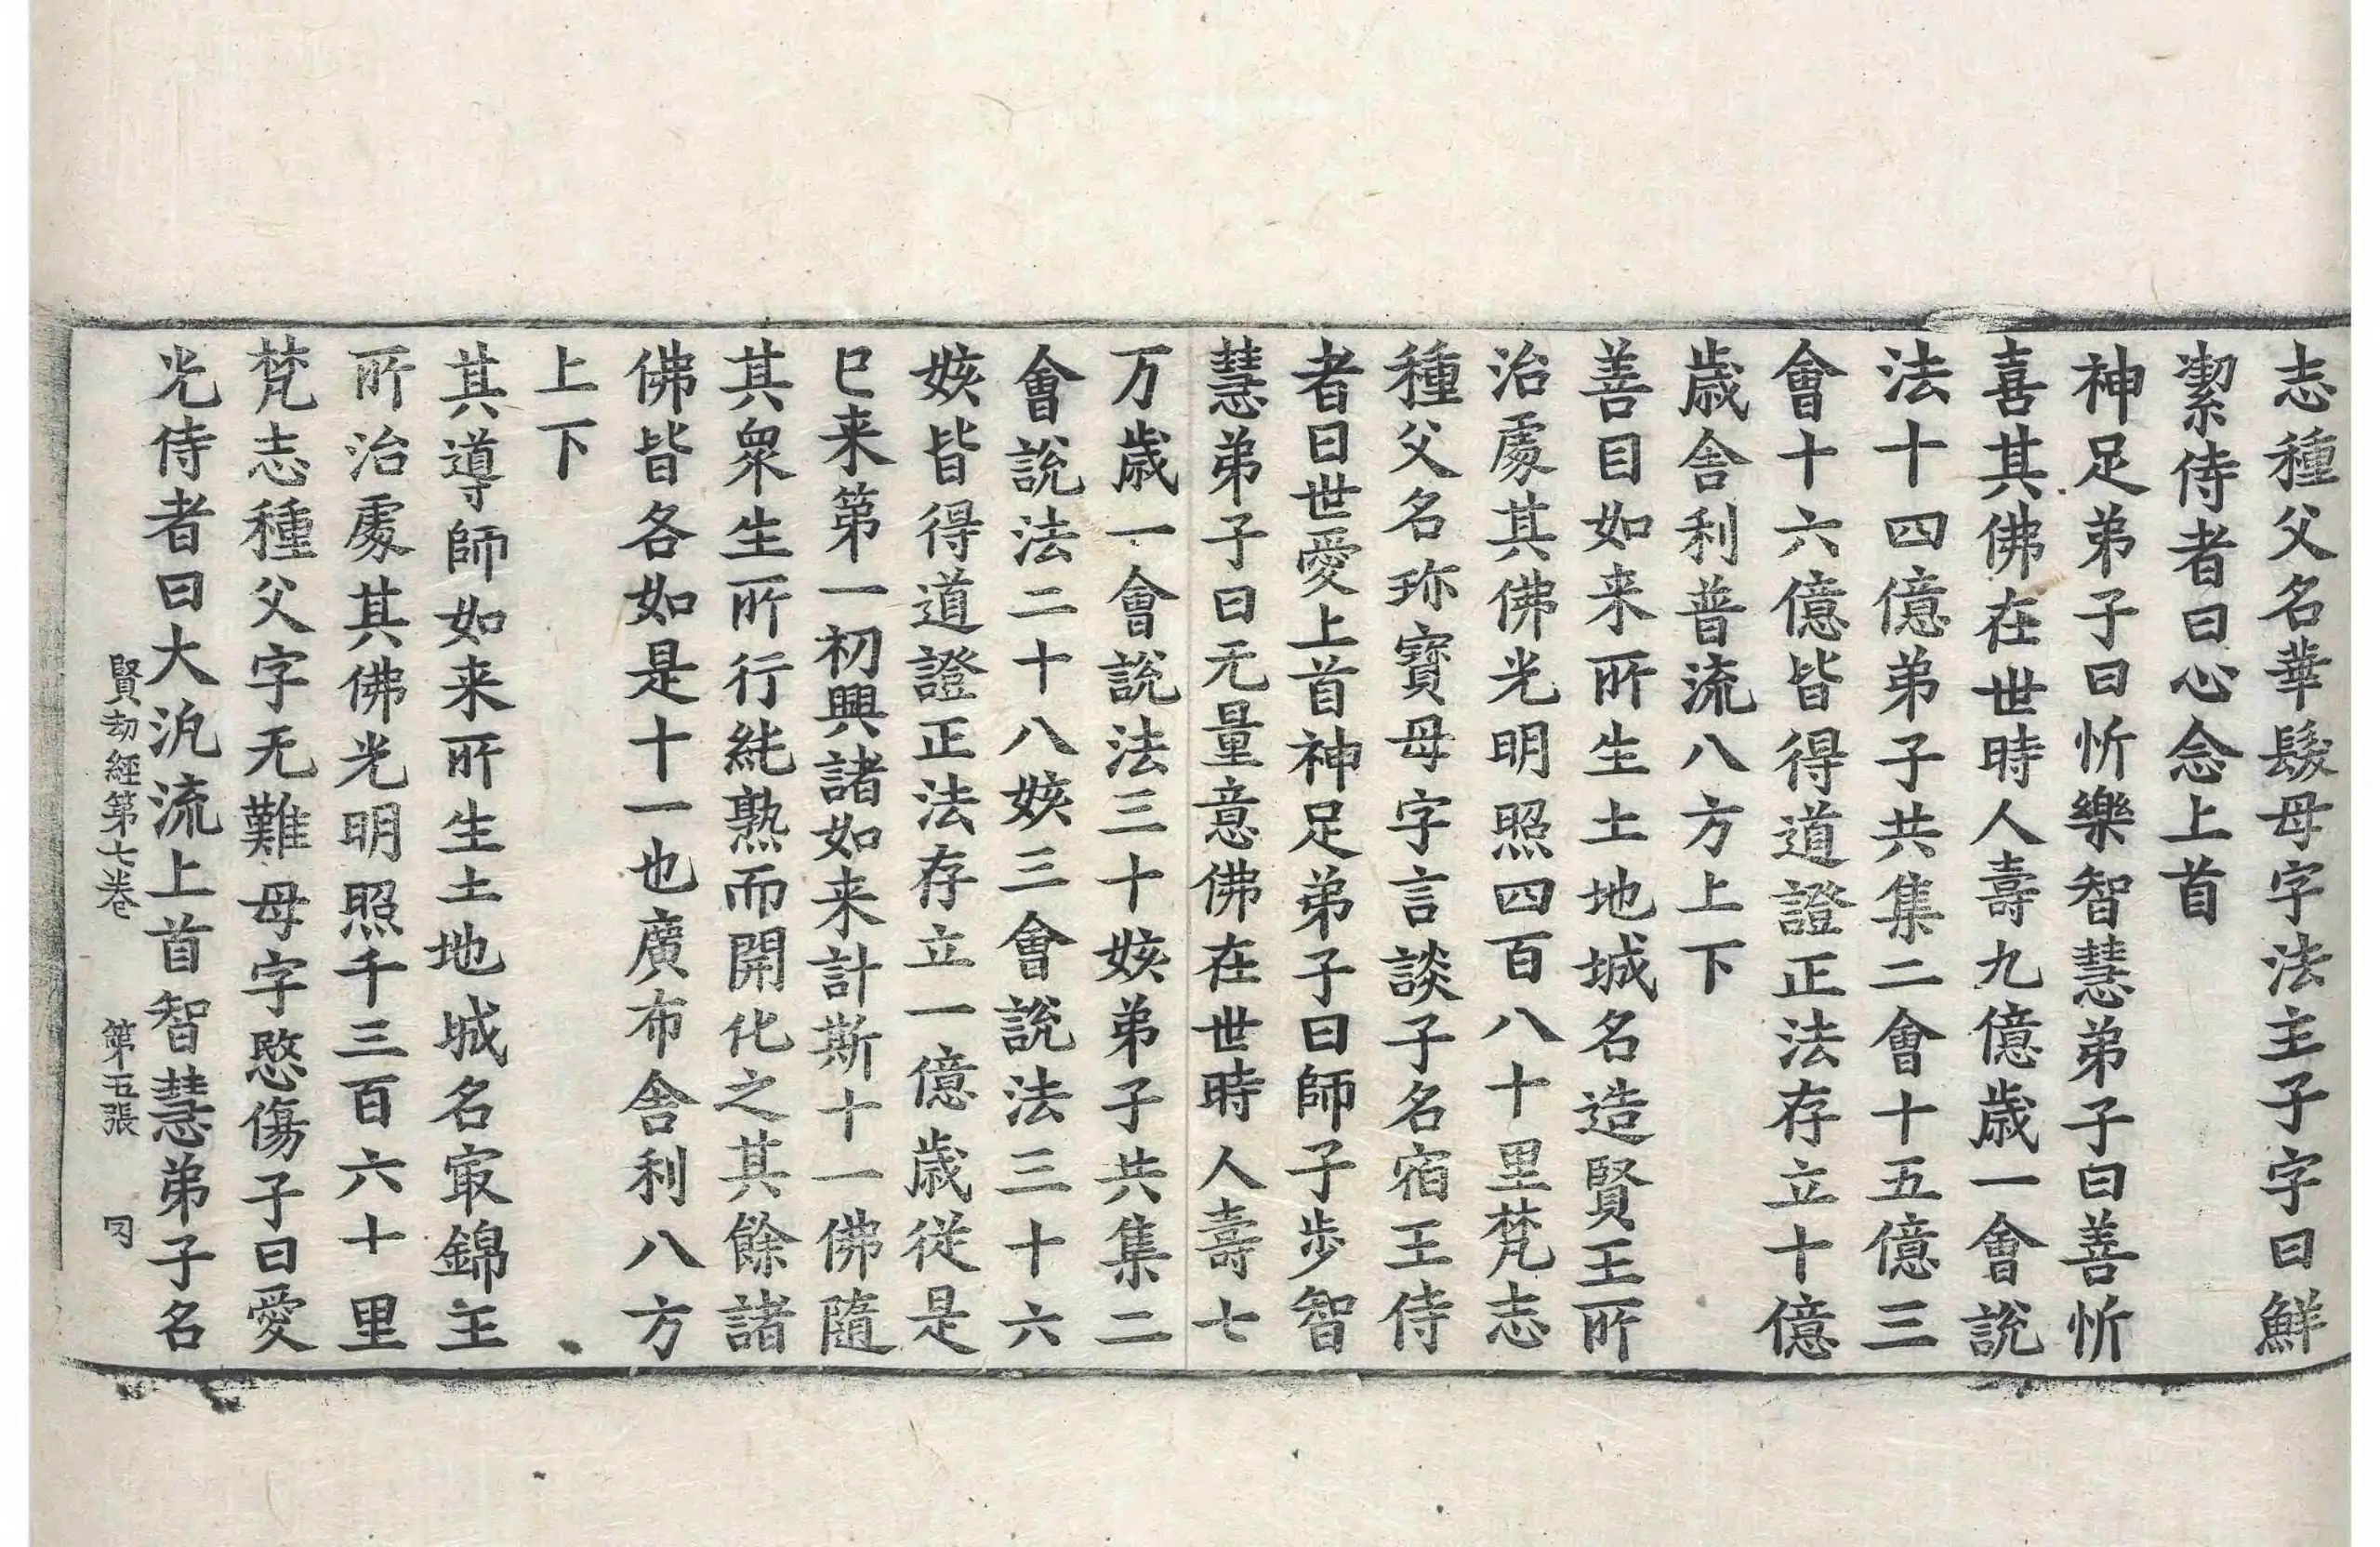 志種父名華鬘母字法主子字曰鮮
潔侍者曰心念上首
神足弟子曰忻樂智慧弟子曰善忻
喜其佛在世時人壽九億歲一會說
法十四億弟子共集二會十五億三
會十六億皆得道證正法存立十億
歲舍利普流八方上下
善目如来所生土地城名造賢王所
治處其佛光明照四百八十里梵志
種父名珎寶母字言談子名宿王侍
者曰世愛上首神足弟子曰師子步智
慧弟子曰无量意佛在世時人壽七
万歲一會說法三十姟弟子共集二
會說法二十八姟三會說法三十六
姟皆得道證正法存立一億歲從是
已来第一初興諸如来計斯十一佛隨
其衆生所行純熟而開化之其餘諸
佛皆各如是十一也廣布舍利八方
上下
其導師如来所生土地城名㝡錦主
所治處其佛光明照千三百六十里
梵志種父字无難母字愍傷子曰愛
光侍者曰大沇流上首智慧弟子名
賢劫經第七卷 第五張